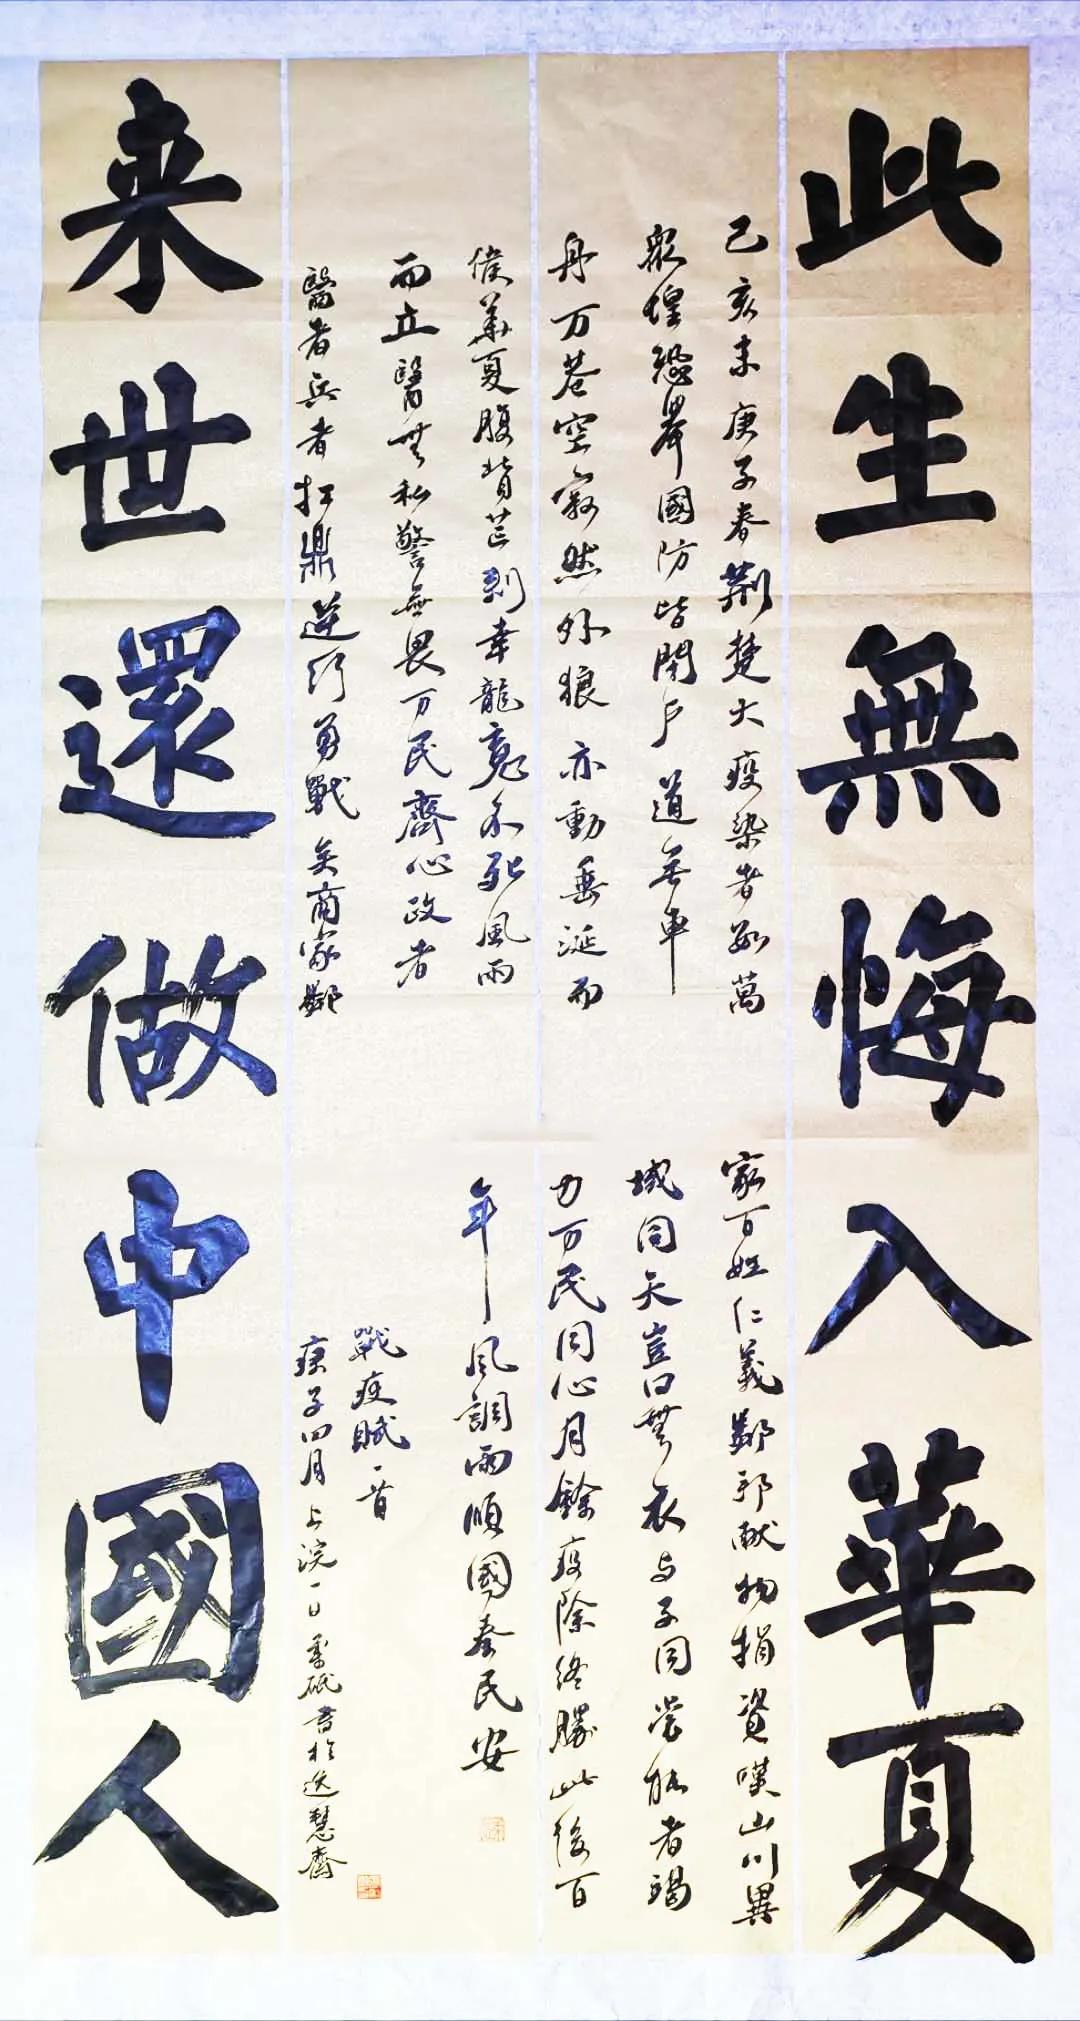 此生無悔入華夏
己亥末庚子春荆楚大疫染者數萬
眾惶恐舉國防皆閉户道無車
舟万巷空寂然外狼亦動垂涎而
候華夏腹背芒刺幸龍魂不死風雨
而立醫無私警無畏万民齊心政者
醫者兵者扛鼎逆行勇戰矣商家鄰
家百姓仁義鄰邦献物捐資嘆山川異
域同天豈曰無衣与子同裳能者竭
力万民同心月餘疫除終勝此後百
年風調雨順國泰民安
戰疫賦一首
庚子四月上浣一日 書於逸慧齋
来世還做中國人